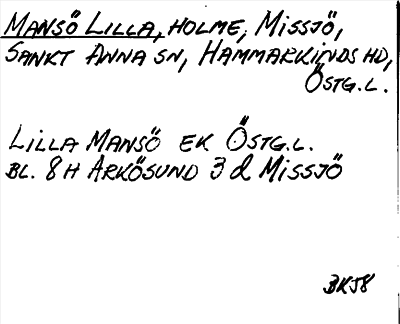 MANSÖ LILLA, HOLME, MISSJÖ,
SANKT ANNA SN, HAMMARKINDS HD,
ÖSTG.L.
LILLA MANSÖ EK ÖSTG.L.
BL. 8H ARKÖSUND 3d MISSJÖ
BKJ8